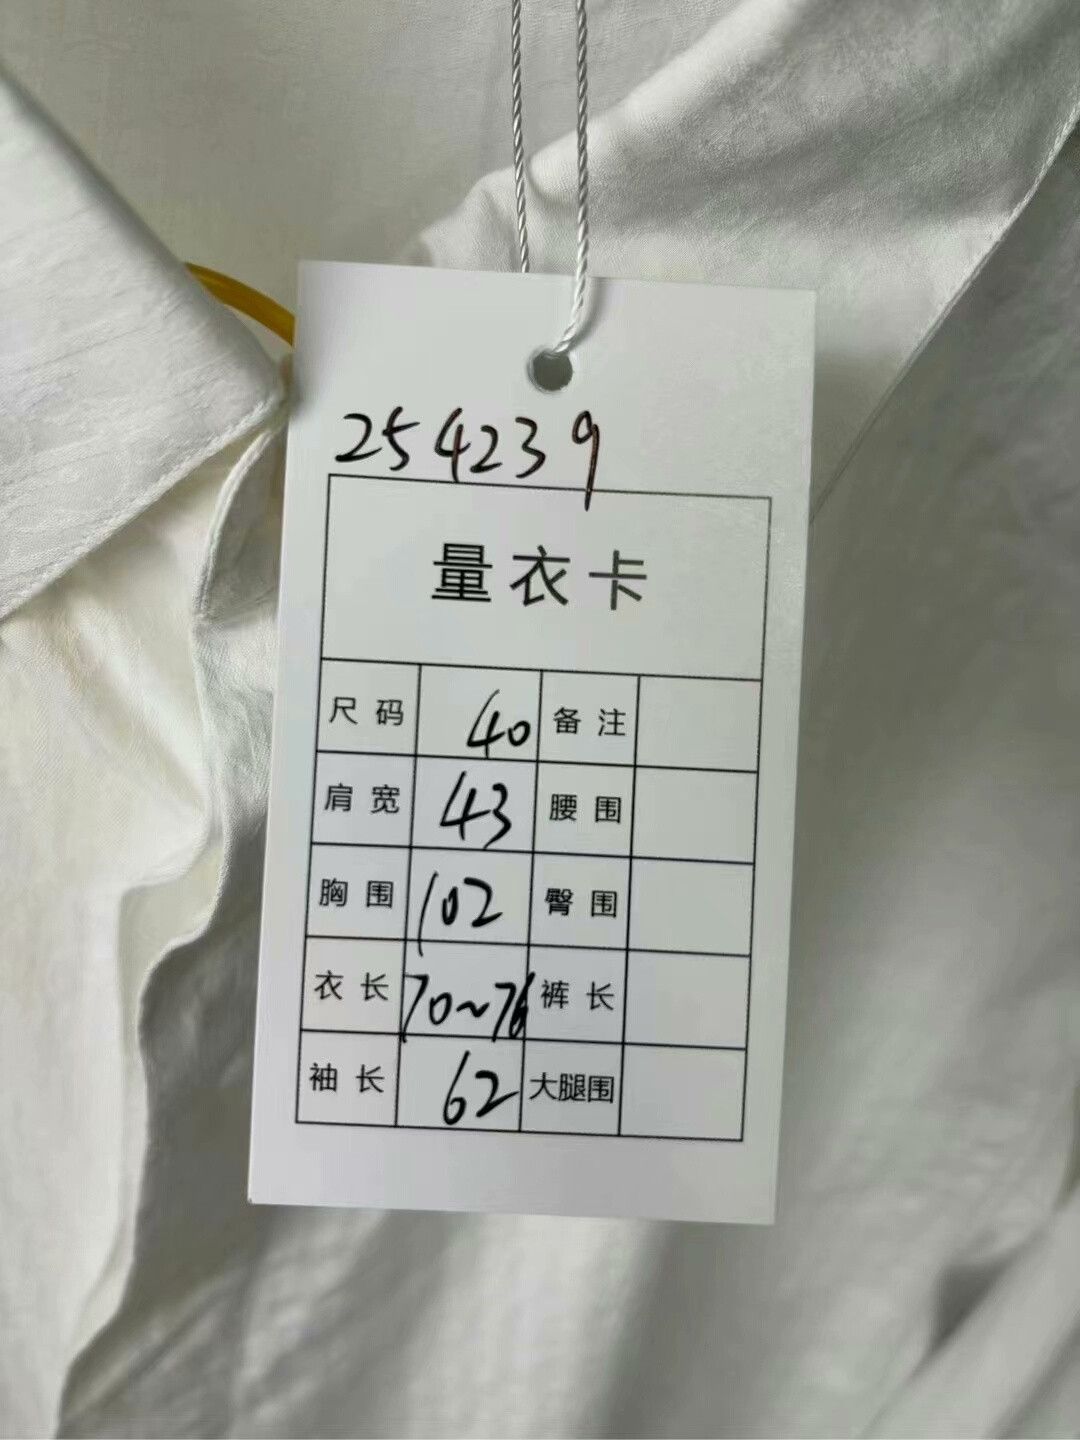 254239
量衣卡
尺码 40 备注
肩宽 43 腰围
胸围 102 臀围
衣长 70~76 裤长
袖长 62 大腿围